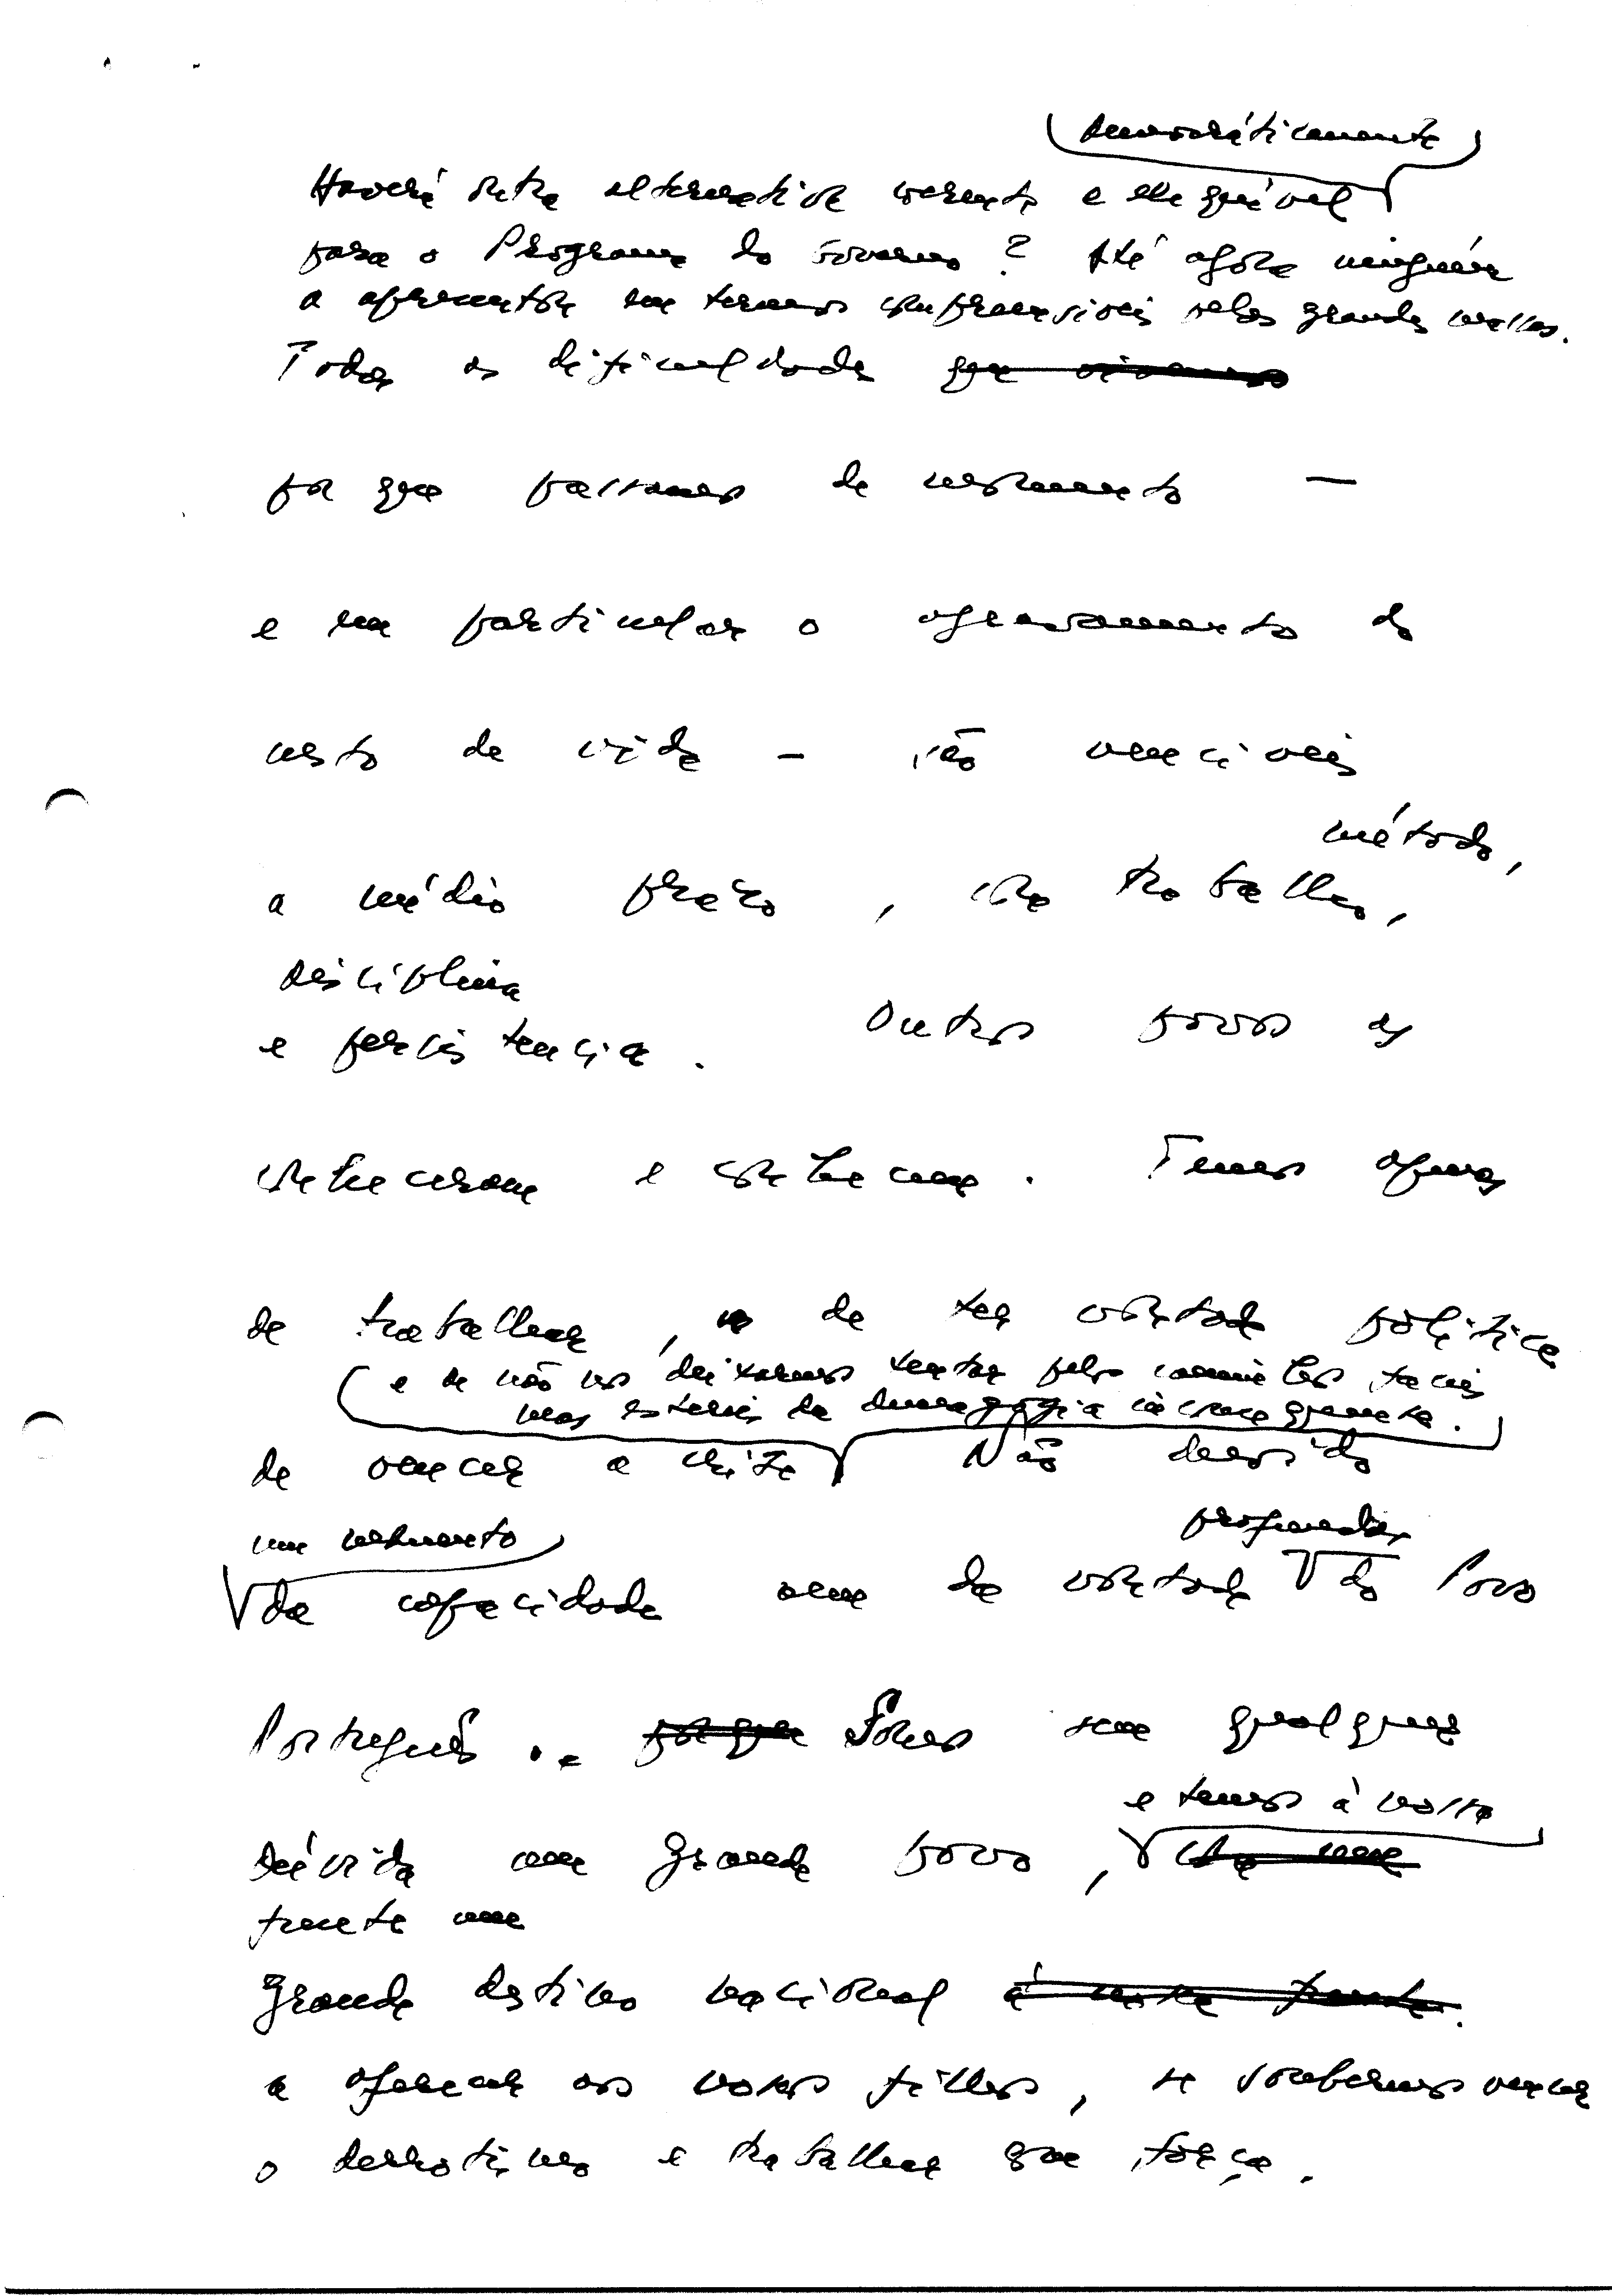 democráticamente
Haverá outra alternativa coerente e exequível
para o Programa do Governo? Até agora ninguém
a apresentou em termos compreensíveis pelas grandes massas.
Todas as dificuldades que vivemos
por que passamos de momento —
e em particular o agravamento do
custo de vida – são vencíveis
método,
a médio prazo, com trabalho,
disciplina
e persistencia. Outros povos as
venceram e vencem. Temos apenas
de trabalhar, de ter vontade política
e de não nos deixarmos tentar pelos caminhos fáceis
mas estéreis da demagogia inconsequente.
de vencer a crise Não duvido
um momento profunda
da capacidade nem da vontade do Povo
Português. porque Somos sem qualquer
e temos à nossa
dúvida um grande povo, com um
frente um
grande destino nacional à nossa frente.
a oferecer aos nossos filhos, se soubermos vencer
o derrotismo e trabalhar com força.